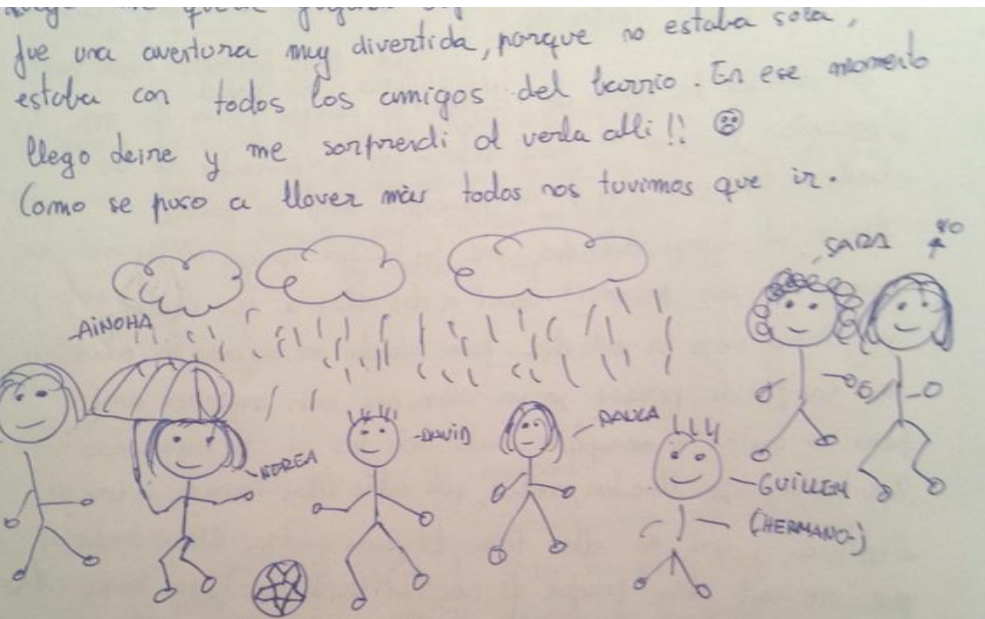 me
fue una aventura muy divertida, porque no estaba sola,
estaba con todos los amigos del barrio. En ese momento
llego deine y me sorprendi al verla alli !!
Como se puso a llover más todos nos tuvimos que ir.
SARA
YO
AiNOHA
-DAViD
PAULA
NEREA
GUiLLEM
(HERMANO-)